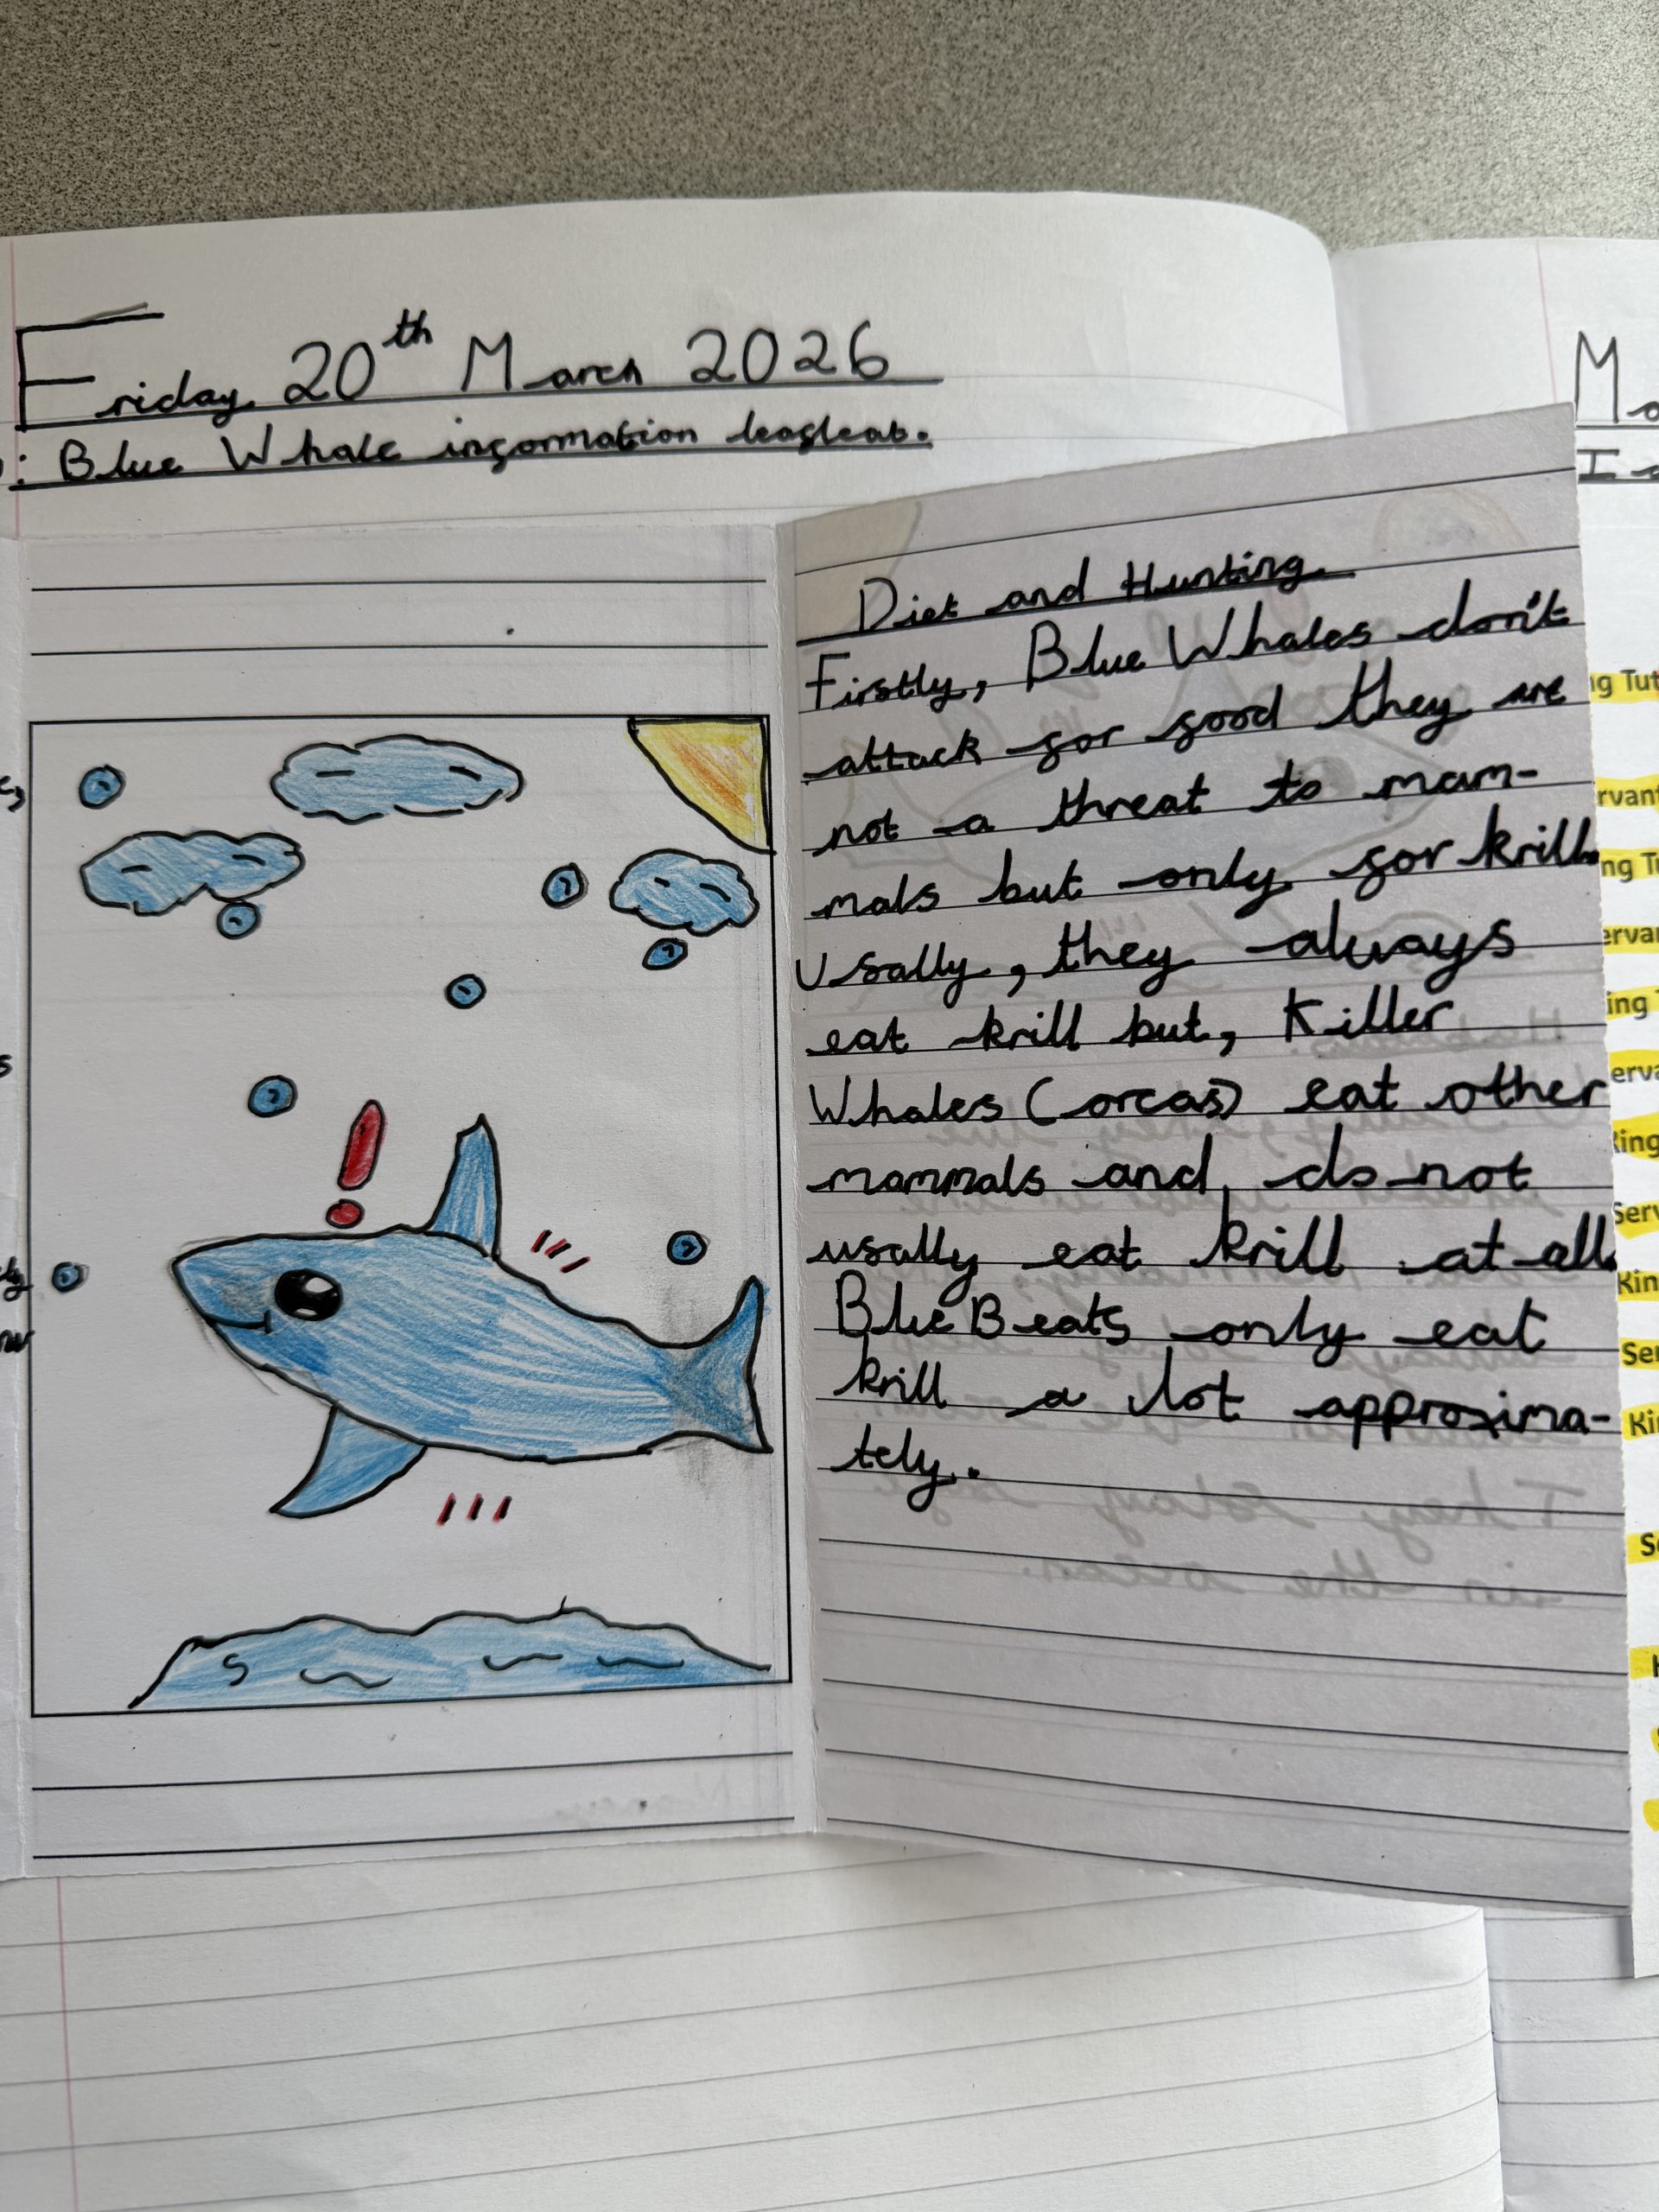 Friday 20th March 2026
: Blue Whale information leafleat.
Diet and Hunting
Firstly, Blue Whales don't
attack for food they are
not a threat to mam-
mals but only for krill.
Usally, they always
eat krill but, Killer
Whales (orcas) eat other
mammals and do not
usally eat krill at all.
Blue Beats only eat
krill a lot approxima-
tely.